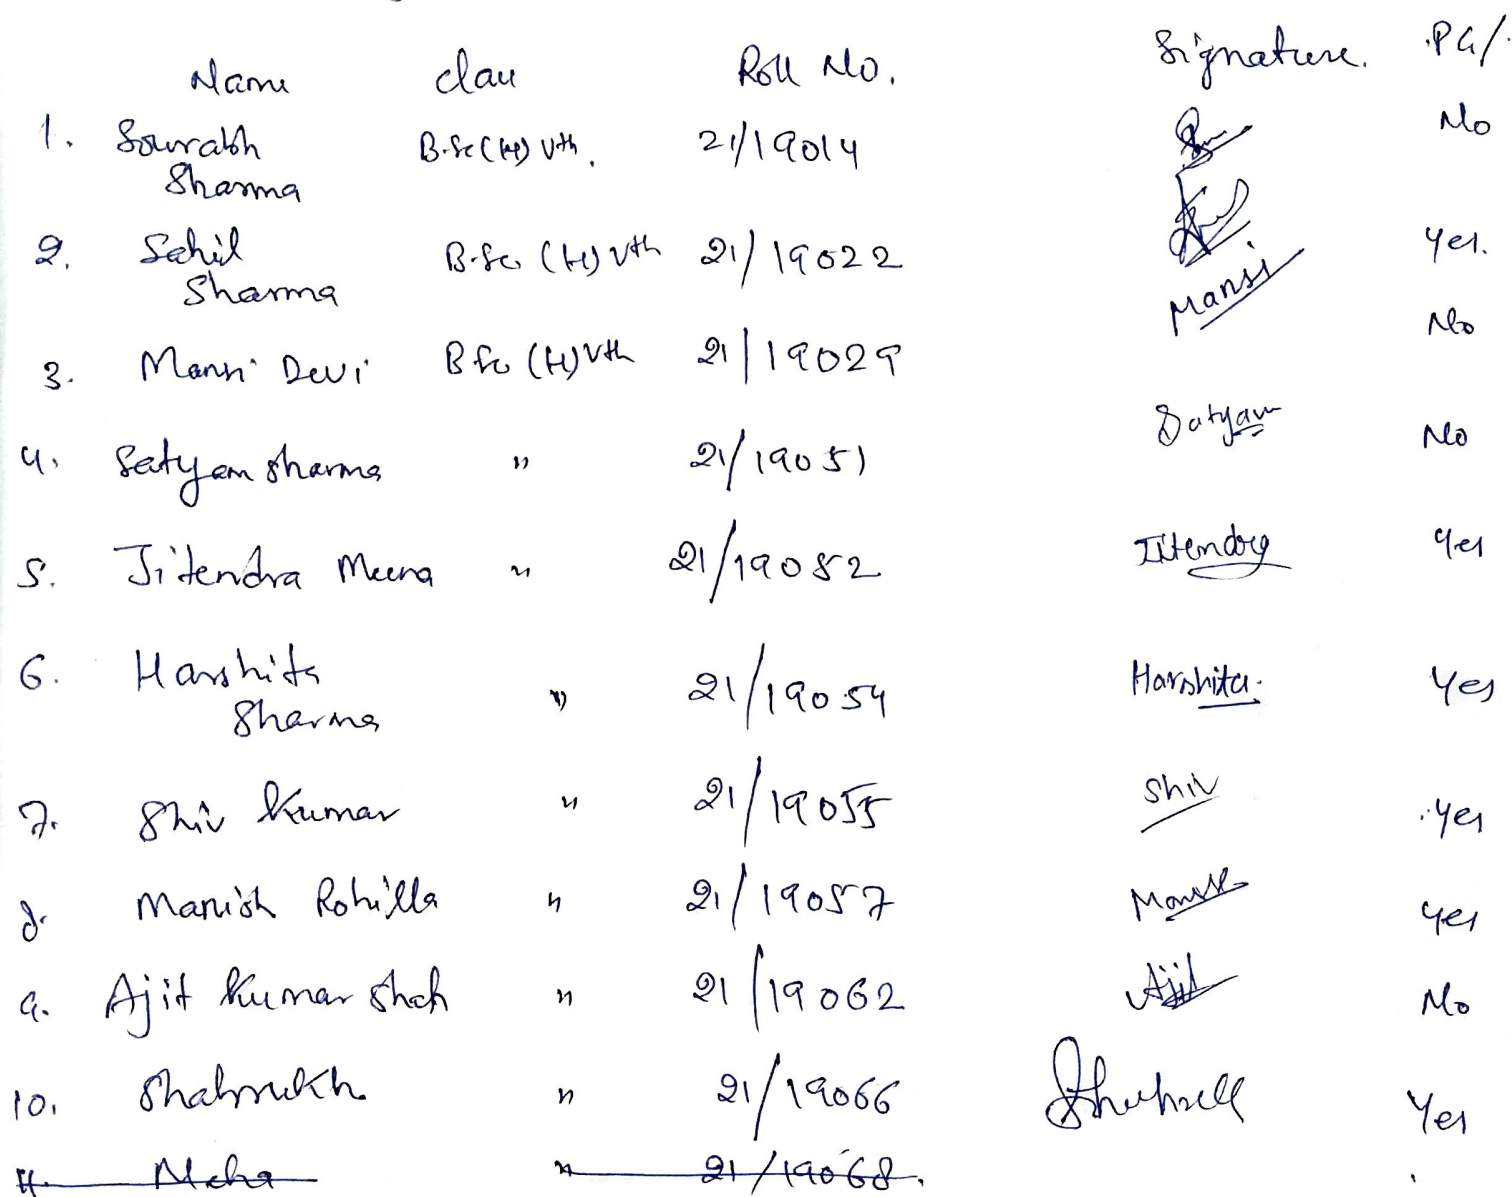 Name Class Roll No. Signature. PG/
1. Sourabh Sharma B.Sc (H) Vth. 21/19014 No
2. Sahil Sharma B.Sc (H) Vth 21/19022 Yes.
3. Mansi Devi BSc (H) Vth 21/19029 Mansi No
4. Satyam Sharma " 21/19051 Satyam No
5. Jitendra Meena " 21/19052 Jitendra Yes
6. Harshita Sharma " 21/19054 Harshita. Yes
7. Shiv Kumar " 21/19055 Shiv Yes
8. Manish Rohilla " 21/19057 Yes
9. Ajit Kumar Shah " 21/19062 Ajit No
10. Shahrukh " 21/19066 Yes
11. Neha " 21/19068.